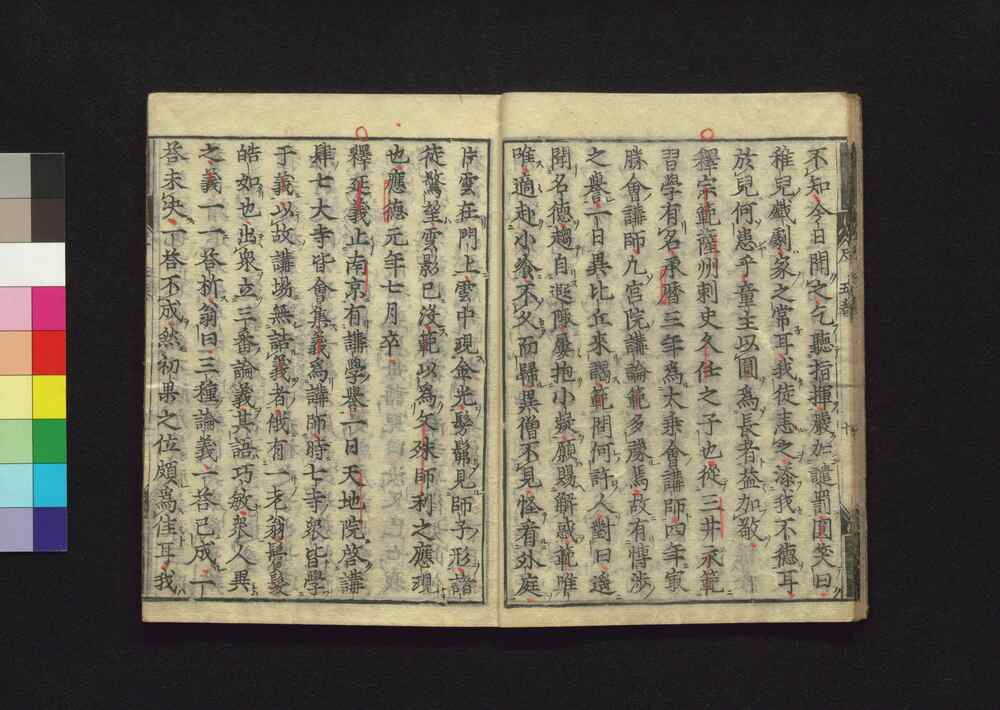 不知今日聞之乞聽指揮嚴加譴罰圓笑曰
稚兒戲劇家之常耳我徒恚之添我不德耳
於兒何恚乎童主以圓爲長者益加敬
釋宗範薩州刺史久任之子也從三井承範
習學有名承曆三年爲大乘會講師四年寅
勝會講師九宮院講論範多豫焉故有博渉
之譽一日異比丘來謁範問何許人對曰遥
聞名德趨自遐陬屢抱小疑願賜解惑範唯
唯適赴小飡不久而歸異僧不見怪看外庭
片雲在門上雲中現金光髣髴見師子形諸
徒驚望雲影已沒範以爲文殊師利之應現
也應德元年七月卒
釋延義止南京有講學譽一日天地院啓講
肆七大寺皆會集義爲講師時七寺衆皆學
于義以故講場無詰義者戝有一老翁鬢髮
皓如也出衆立三番論義其語巧敏衆人異
之義一一荅析翁曰三種論義一荅已成一
荅未決一荅不成然初果之位頗爲佳耳我